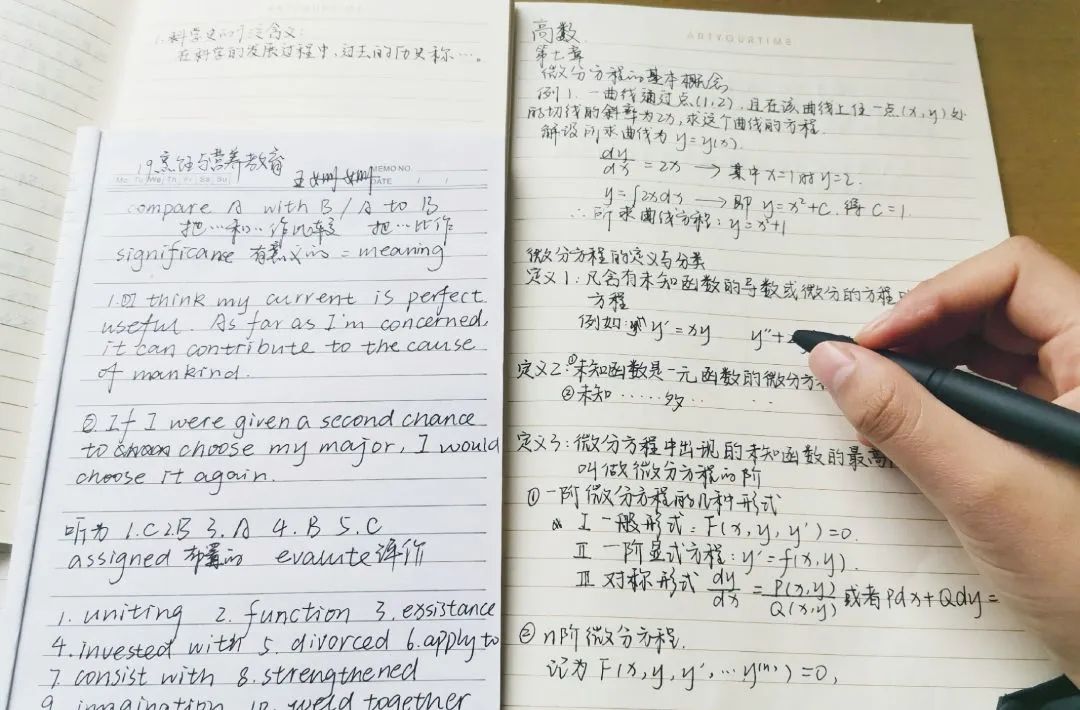 1.科学史的涵义:
在科学的发展过程中,过去的历史称…。
19烹饪与营养教育
MEMO NO.
Mo Tu We Th Fr Sa Su
DATE / /
compare A with B / A to B
把…和…作比较 把…比作
significanse 有意义的 = meaning
1.① think my current is perfect
useful. As far as I'm concerned,
it can contribute to the cause
of mankind.
②. If I were given a second chance
to choose my major, I would
choose it again.
听力 1.C 2.B 3.A 4.B 5.C
assigned 布置的 evaluate 评价
1. uniting 2. function 3. exsistance
4. invested with 5. divorced 6. apply to
7. consist with 8. strengthened
9. imagination 10. weld together
ARTYOURTIME
高数
第七章
微分方程的基本概念
例1. 一曲线通过点(1,2),且在该曲线上任一点(x,y)处
的切线的斜率为2x,求这个曲线的方程.
解设所求曲线为 y=y(x).
dy/dx = 2x → 其中x=1时y=2.
y=∫2xdx → 即 y=x²+C.得C=1
∴所求曲线方程:y=x²+1
微分方程的定义与分类
定义1:凡含有未知函数的导数或微分的方程
方程
例如: y'=xy y''+
定义2:①未知函数是一元函数的微分方
②未知……
定义3:微分方程中出现的未知函数的最高
叫做微分方程的阶
① 一阶微分方程的几种形式
I 一般形式:F(x,y,y')=0.
II 一阶显式方程:y'=f(x,y).
III 对称形式 dy/dx = P(x,y)/Q(x,y) 或者Pdx+Qdy=
② n阶微分方程.
记为F(x,y,y',…y⁽ⁿ⁾)=0,